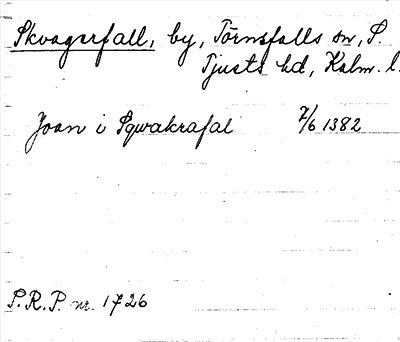 Skvagerfall, by, Törnsfalls sn, S.
Tjusts hd, Kalm. l.
Joan i Sqwakrafal 7/6 1382
S.R.P. nr. 1726